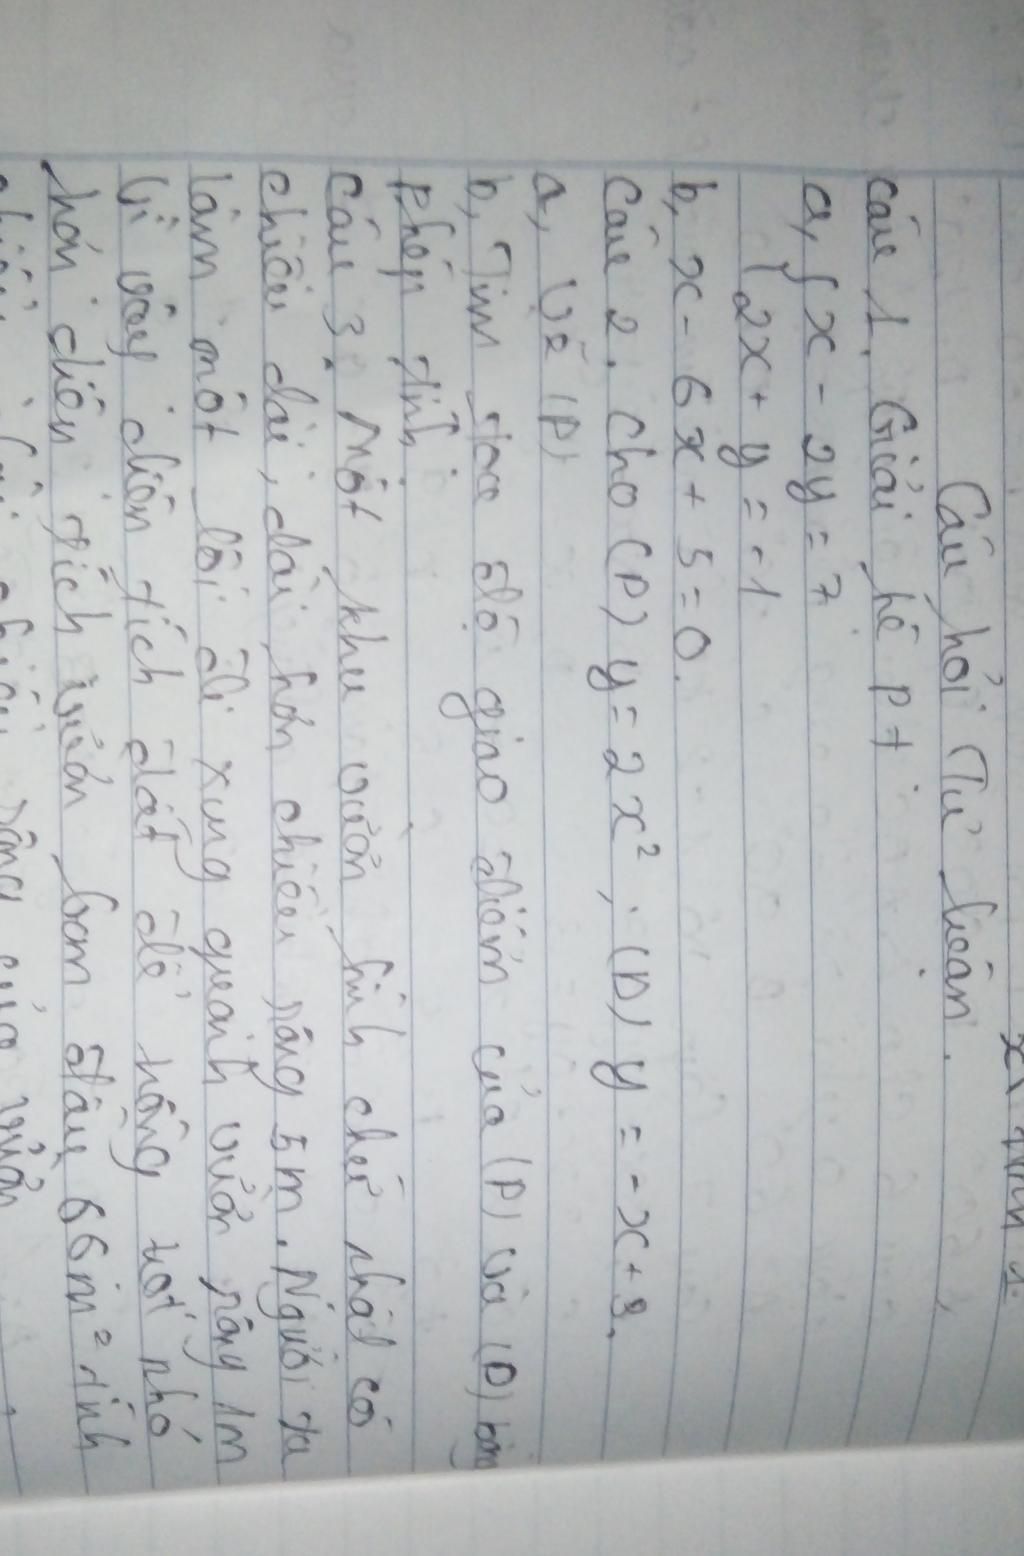 Câu hỏi Tự luận.
Câu 1. Giải hệ pt
a, { x - 2y = 7
{ 2x + y = -1
b, x - 6x + 5 = 0.
Câu 2. Cho (P) y = 2x², (D) y = -x + 3.
a, Vẽ (P)
b, Tìm tọa độ giao điểm của (P) và (D) bằng
phép tính
Câu 3. Một khu vườn hình chữ nhật có
chiều dài, dài hơn chiều rộng 5m. Người ta
làm một lối đi xung quanh vườn rộng 1m
Vì vậy diện tích đất để trồng trọt nhỏ
hơn diện tích vườn ban đầu 66m² tính